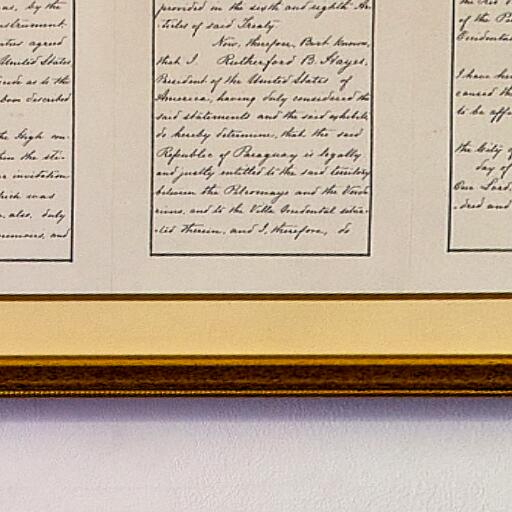 as, by the
instrument
ties agreed
United States
ide as to the
bove described
the High con-
the sti-
invitation
which was
ates, duly
memoirs, and
provided in the sixth and eighth Ar-
ticles of said Treaty.
Now, therefore, Be it known,
that I, Rutherford B. Hayes,
President of the United States of
America, having duly considered the
said statements and the said exhibits,
do hereby determine, that the said
Republic of Paraguay is legally
and justly entitled to the said territory
between the Pilcomayo and the Verde
rivers, and to the Villa Occidental situa-
-ted therein, and I, therefore, do
of the
Occidental
I have her
caused the
to be aff
the City of
day of
Our Lord
-dred and